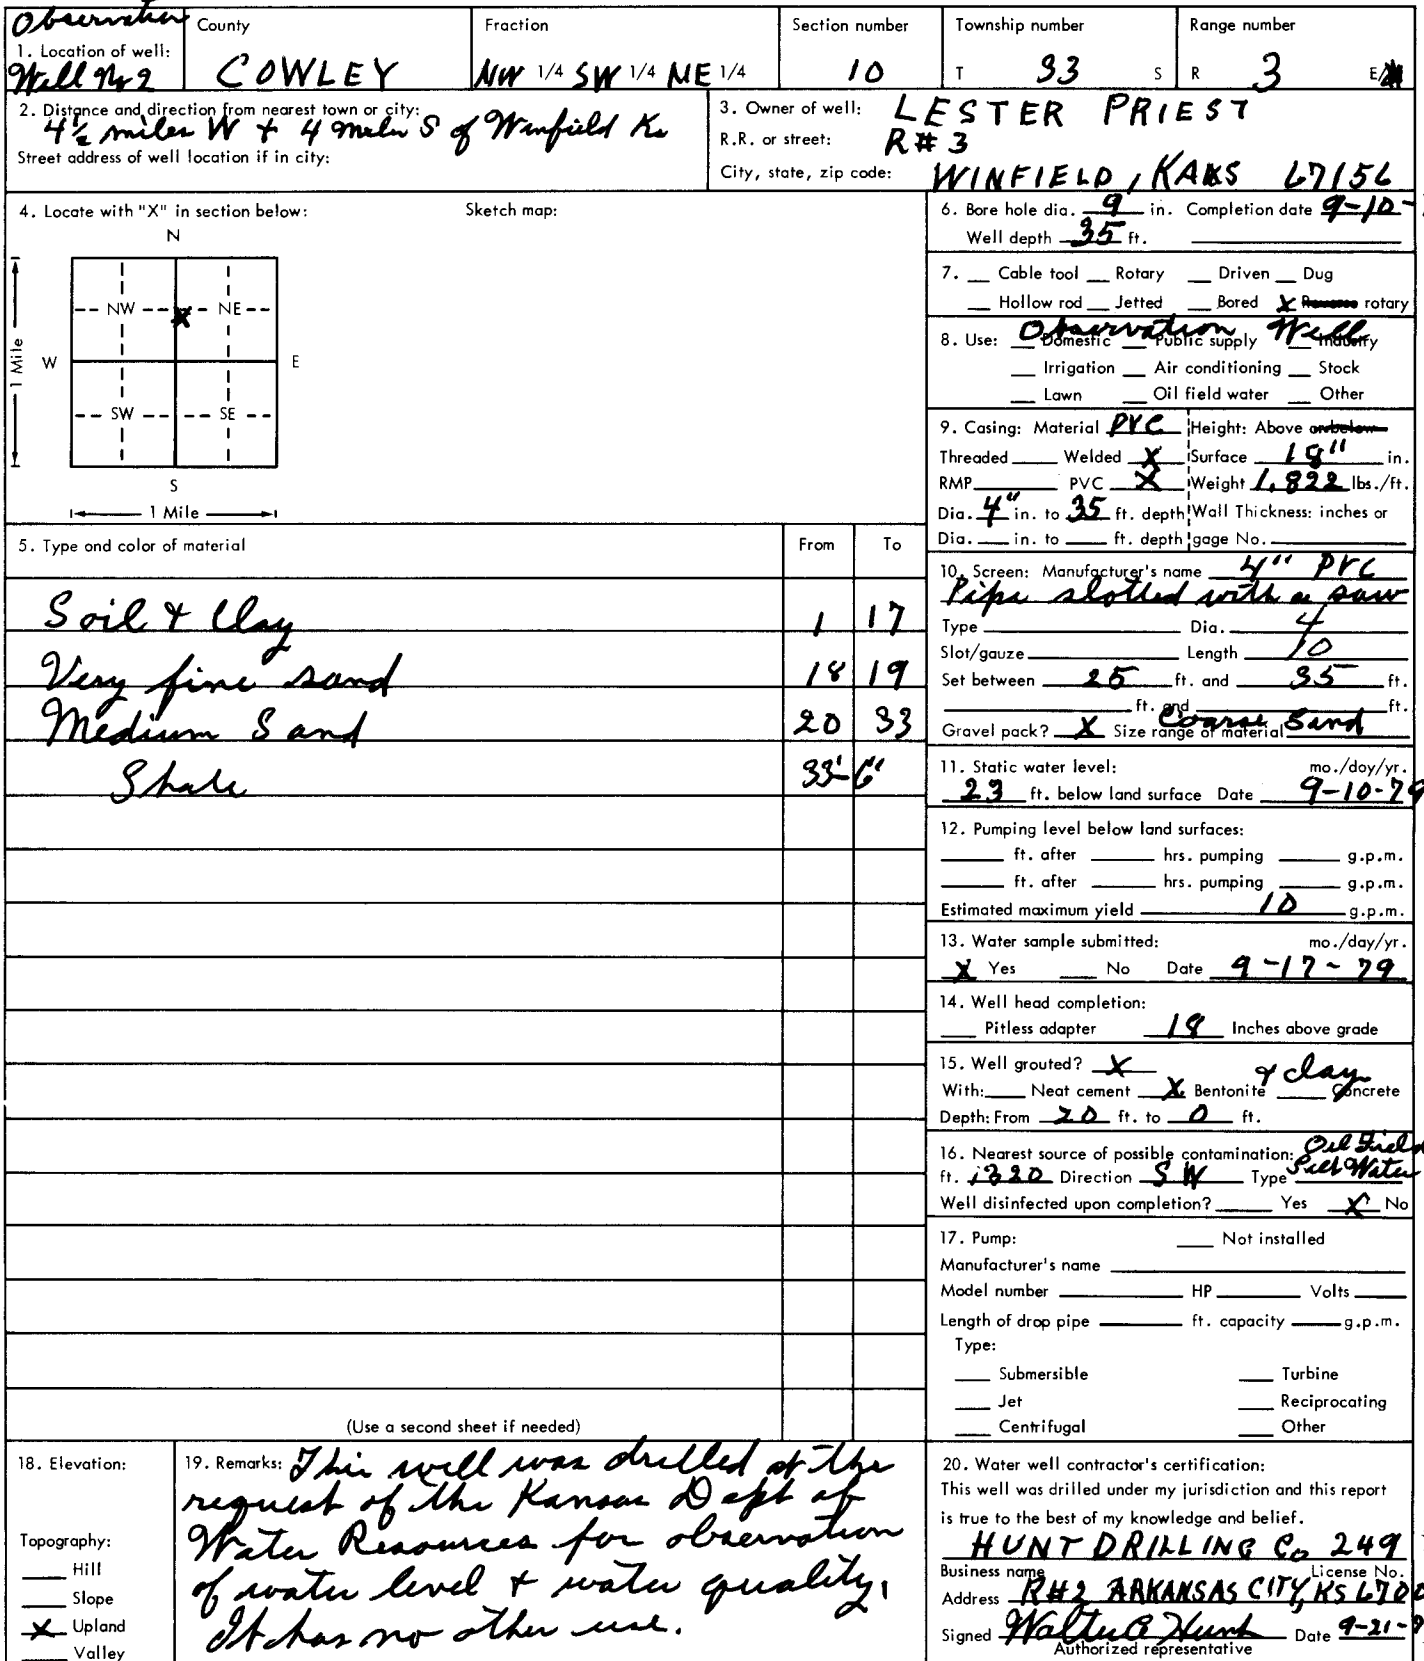 Observation
1. Location of well:
Well No 2
County
COWLEY
Fraction
NW 1/4 SW 1/4 NE 1/4
Section number
10
Township number
T 33 S
Range number
R 3 E/
2. Distance and direction from nearest town or city:
4 1/2 miles W + 4 miles S of Winfield Ks
Street address of well location if in city:
3. Owner of well: LESTER PRIEST
R.R. or street: R#3
City, state, zip code: WINFIELD, KANS 67156
4. Locate with "X" in section below:
Sketch map:
N
NW X NE
W E
1 Mile
SW SE
S
1 Mile
5. Type and color of material From To
Soil & Clay 1 17
Very fine sand 18 19
Medium Sand 20 33
Shale 33' 6"
(Use a second sheet if needed)
6. Bore hole dia. 9 in. Completion date 9-10-
Well depth 35 ft.
7. Cable tool Rotary Driven Dug
Hollow rod Jetted Bored X Reverse rotary
Observation Well
8. Use: Domestic Public supply Industry
Irrigation Air conditioning Stock
Lawn Oil field water Other
9. Casing: Material PVC Height: Above or below
Threaded Welded X Surface 18" in.
RMP PVC X Weight 1.822 lbs./ft.
Dia. 4" in. to 35 ft. depth Wall Thickness: inches or
Dia. in. to ft. depth gage No.
10. Screen: Manufacturer's name 4" PVC
Pipe slotted with a saw
Type Dia. 4
Slot/gauze Length 10
Set between 25 ft. and 35 ft.
ft. and ft.
Gravel pack? X Size range of material Coarse Sand
11. Static water level: mo./day/yr.
23 ft. below land surface Date 9-10-79
12. Pumping level below land surfaces:
ft. after hrs. pumping g.p.m.
ft. after hrs. pumping g.p.m.
Estimated maximum yield 10 g.p.m.
13. Water sample submitted: mo./day/yr.
X Yes No Date 9-17-79
14. Well head completion:
Pitless adapter 18 Inches above grade
15. Well grouted? X
With: Neat cement X Bentonite & clay Concrete
Depth: From 20 ft. to 0 ft.
16. Nearest source of possible contamination: Oil Field
ft. 1320 Direction SW Type Salt Water
Well disinfected upon completion? Yes X No
17. Pump: Not installed
Manufacturer's name
Model number HP Volts
Length of drop pipe ft. capacity g.p.m.
Type:
Submersible Turbine
Jet Reciprocating
Centrifugal Other
18. Elevation:
Topography:
Hill
Slope
X Upland
Valley
19. Remarks: This well was drilled at the
request of the Kansas Dept of
Water Resources for observation
of water level & water quality.
It has no other use.
20. Water well contractor's certification:
This well was drilled under my jurisdiction and this report
is true to the best of my knowledge and belief.
HUNT DRILLING Co 249
Business name License No.
Address R#2 ARKANSAS CITY, KS 6700
Signed Walter A Hunt Date 9-21-
Authorized representative